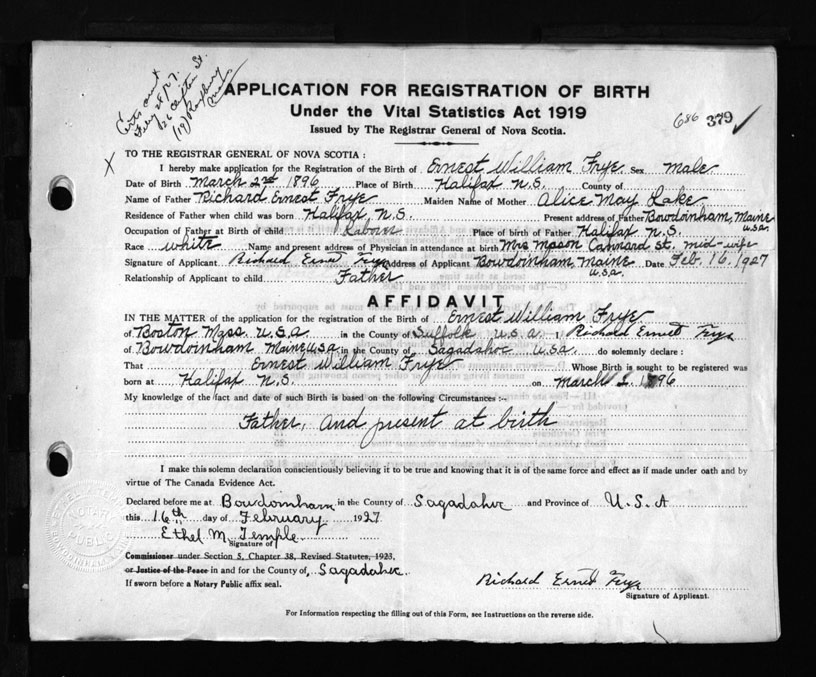 Certs sent
Feby 28/27.
26 Clifton St.
(19) Roxbury
Mass
APPLICATION FOR REGISTRATION OF BIRTH
Under the Vital Statistics Act 1919
Issued by The Registrar General of Nova Scotia.
686 379 ✓
X TO THE REGISTRAR GENERAL OF NOVA SCOTIA :
I hereby make application for the Registration of the Birth of Ernest William Frye Sex Male
Date of Birth March 2nd 1896 Place of Birth Halifax N.S. County of
Name of Father Richard Ernest Frye Maiden Name of Mother Alice May Lake
Residence of Father when child was born Halifax N.S. Present address of Father Bowdoinham, Maine U.S.A.
Occupation of Father at Birth of child Laborer Place of birth of Father Halifax N.S.
Race white Name and present address of Physician in attendance at birth Mrs Mason Cannard St. mid-wife
Signature of Applicant Richard Ernest Frye Address of Applicant Bowdoinham, Maine U.S.A. Date Feb. 16, 1927
Relationship of Applicant to child Father
AFFIDAVIT
IN THE MATTER of the application for the registration of the Birth of Ernest William Frye
of Boston Mass. U.S.A. in the County of Suffolk U.S.A. I, Richard Ernest Frye
of Bowdoinham Maine U.S.A. in the County of Sagadahoc U.S.A. do solemnly declare :
That Ernest William Frye Whose Birth is sought to be registered was
born at Halifax N.S. on March 2 1896
My knowledge of the fact and date of such Birth is based on the following Circumstances :-
Father, and present at birth
I make this solemn declaration conscientiously believing it to be true and knowing that it is of the same force and effect as if made under oath and by
virtue of The Canada Evidence Act.
Declared before me at Bowdoinham in the County of Sagadahoc and Province of U.S.A
this 16th day of February 1927
Ethel M. Temple
Signature of
Commissioner under Section 5, Chapter 38, Revised Statutes, 1923,
or Justice of the Peace in and for the County of, Sagadahoc
If sworn before a Notary Public affix seal.
Richard Ernest Frye
Signature of Applicant.
For Information respecting the filling out of this Form, see Instructions on the reverse side.
NOTARY
PUBLIC